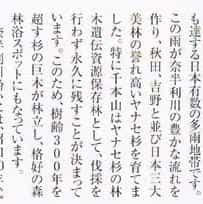 も達する日本有数の多雨地帯です。
この雨が奈半利川の豊かな流れを
作り、秋田、吉野と並び日本三大
美林の誉れ高いヤナセ杉を育てま
した。特に千本山はヤナセ杉の林
木遺伝資源保存林として、伐採を
行わず永久に残すことが決まって
います。このため、樹齢300年を
超す杉の巨木が林立し、格好の森
林浴スポットにもなっています。